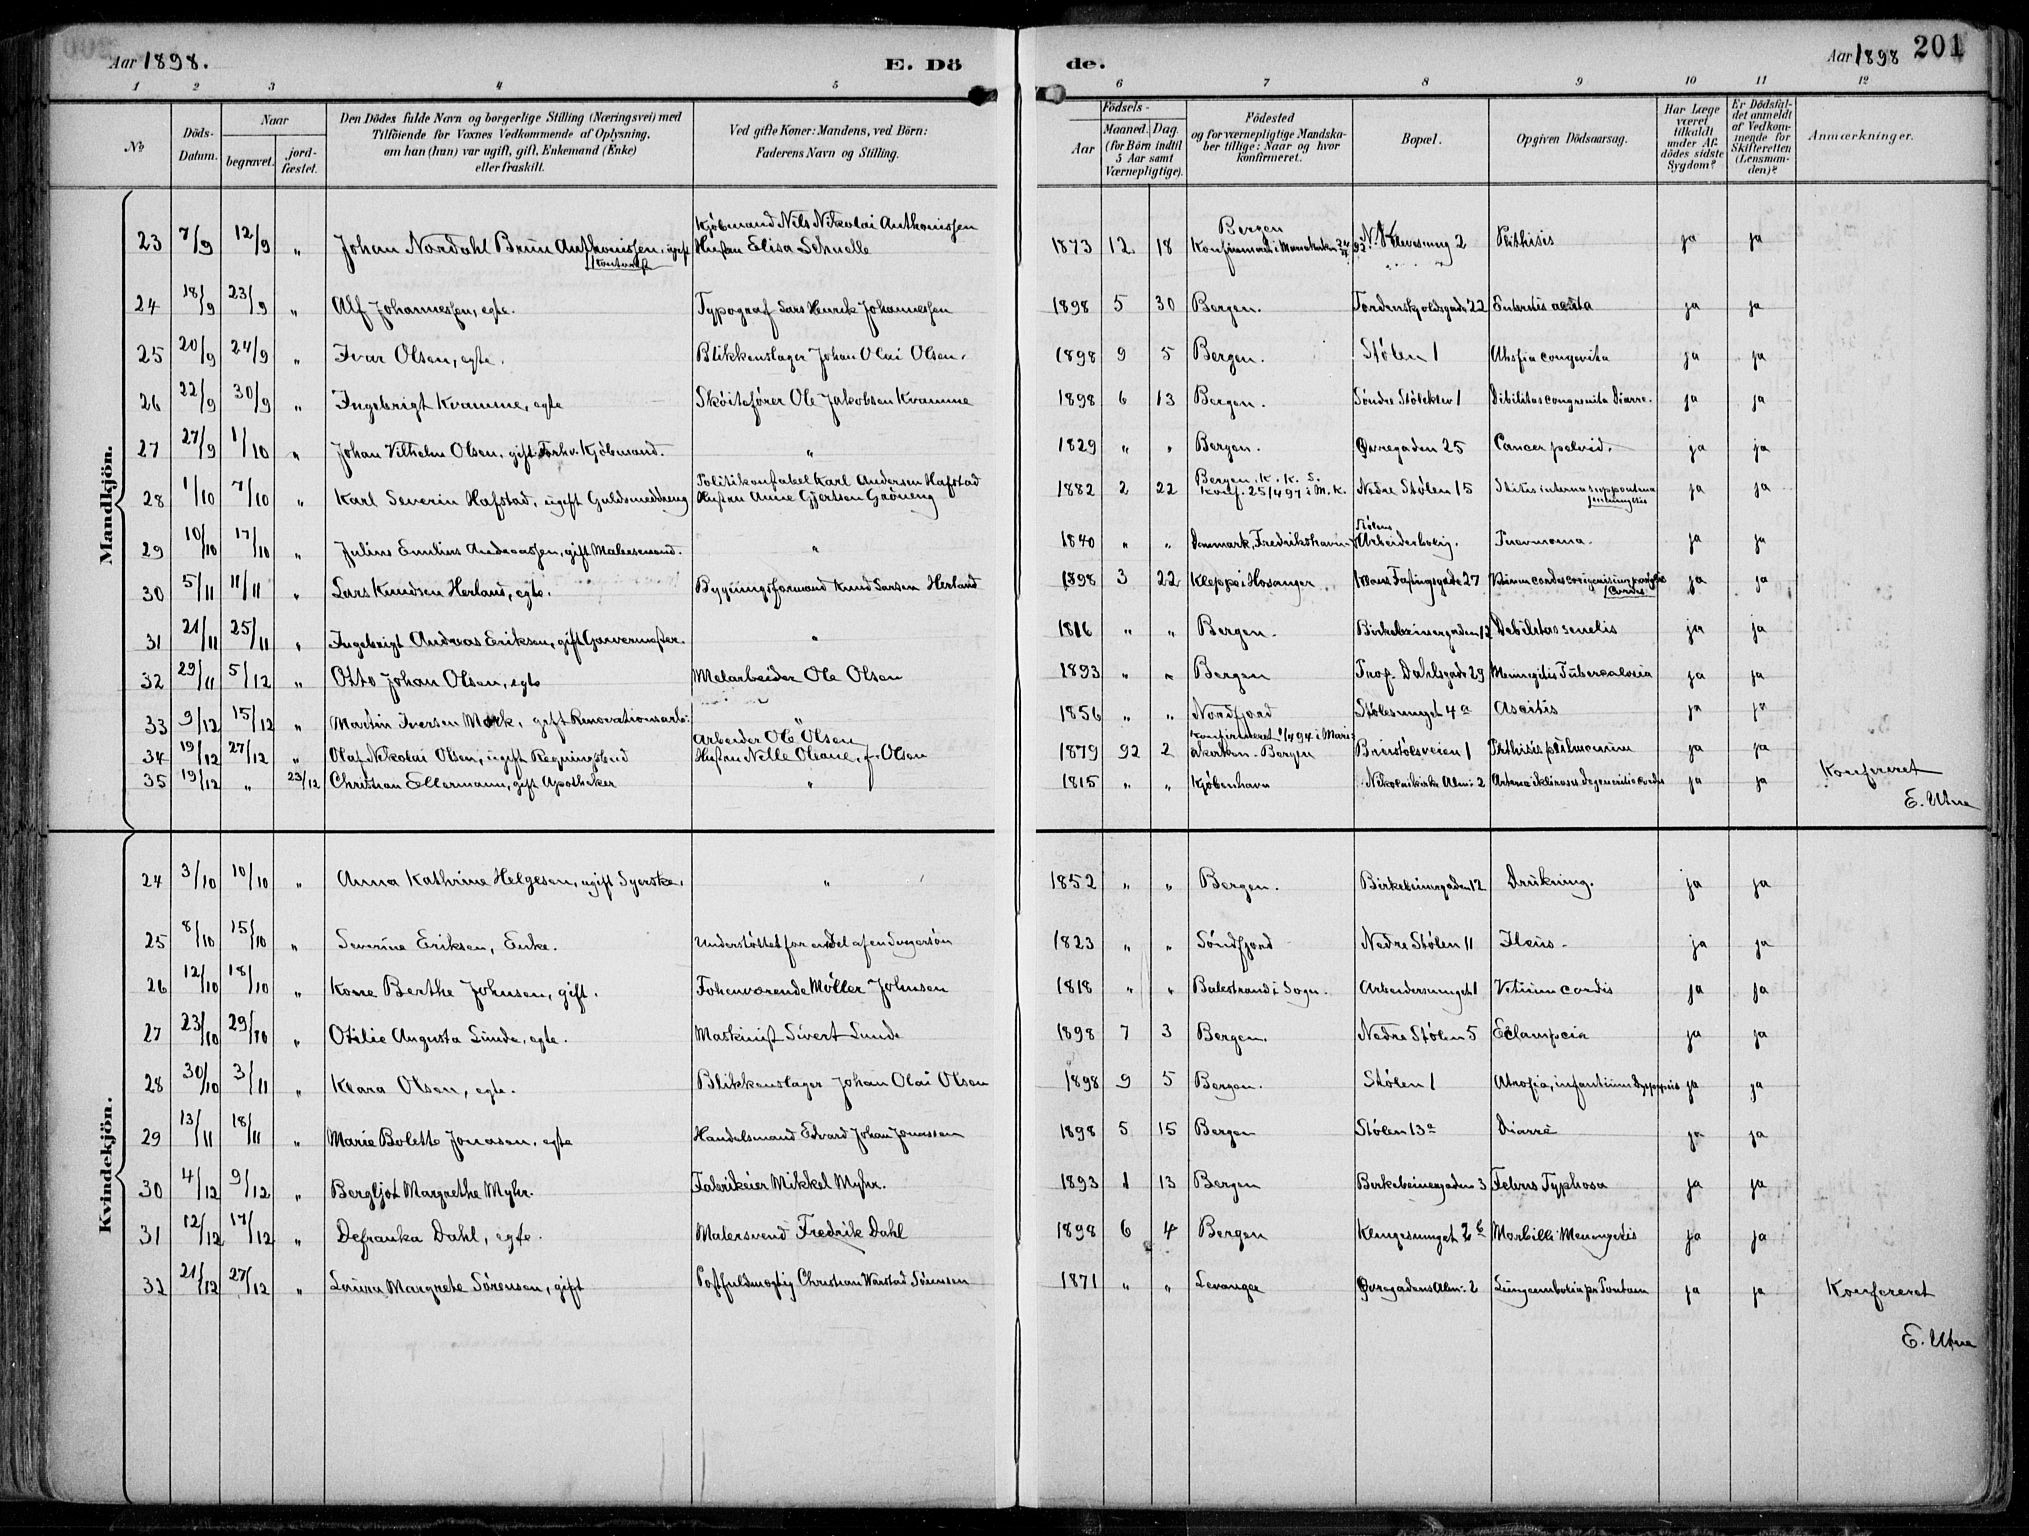 Aar 1898.
E. Dö
de.
Aar 1898
201
1 2 3 4 5 6 7 8 9 10 11 12
No
Döds-Datum.
Naar
begravet.
jord-fæstet.
Den Dödes fulde Navn og borgerlige Stilling (Næringsvei) med
Tilföiende for Voxnes Vedkommende af Oplysning,
om han (hun) var ugift, gift, Enkemand (Enke)
eller fraskilt.
Ved gifte Koner: Mandens, ved Börn:
Faderens Navn og Stilling.
Födsels-
Aar
Maaned. Dag.
(for Børn indtil
5 Aar samt
Værnepligtige).
Födested
og for værnepligtige Mandska-
ber tillige: Naar og hvor
konfirmeret.
Bopæl.
Opgiven Dödsaarsag.
Har Læge
været
tilkaldt
under Af-
dödes sidste
Sygdom?
Er Dödsfal-
det anmeldt
af Vedkom-
mende for
Skifteretten
(Lensman-
den)?
Anmærkninger.
Mandkjön.
23 7/9 12/9 " Johan Nordahl Brun Anthonissen, ugift Kontorist Kjöbmand Nils Nikolai Anthonissen Hustru Elisa Schnelle 1873 12 18 Bergen Konfirmeret i Mariakirken 2 Phthisis ja ja
24 18/9 23/9 " Alf Johannessen, egte. Typograf Lars Henrik Johannessen 1898 5 30 Bergen. Tordenskjoldsgade 22 Enteritis acuta ja ja
25 20/9 24/9 " Ivar Olsen, egte. Blikkenslager Johan Olai Olsen. 1898 9 5 Bergen. Stølen 1 congenita ja ja
26 22/9 30/9 " Ingebrigt Kvamme, egte Skøitefører Ole Jakobsen Kvamme 1898 6 13 Bergen. Søndre Støleklev 1 Dibilitas congenita Diarre. ja ja
27 27/9 1/10 " Johan Vilhelm Olsen, gift Forhv. Kjöbmand. " 1829 " " Bergen. Øvregaden 25 Cancer ja ja
28 1/10 7/10 " Karl Severin Hafstad, ugift Guldsmeddreng Politikonstabel Karl Andersen Hafstad Hustru Anne Gjertsen Gröneng 1882 2 22 Bergen. K. K. S. Konf. 25/4 97 i M. K. Nedre Stølen 15 Otitis interna ja ja
29 10/10 17/10 " Julius Emilius Andreassen, gift Malersvend. " 1840 " " Danmark, Fredrikshavn Stølens Arbeiderbolig. Pnevmonia. ja ja
30 5/11 11/11 " Lars Knudsen Herland, egte. Bygningsformand Knud Larsen Herland 1898 3 22 Kleppe i Hosanger Klaus Fastingsgade 27 Vitium cordis ja ja
31 21/11 25/11 " Ingebrigt Andreas Eriksen, gift Garvermester. " 1816 " " Bergen. Birkebeinergaden 12 Debilitas senelis ja ja
32 29/11 5/12 " Otto Johan Olsen, egte Melarbeider Ole Olsen 1893 " " Bergen Prof. Dahlsgade 29 Meningitis Tuberculosia ja ja
33 9/12 15/12 " Martin Iversen Mork, gift Renovationsarb: " 1856 " " Nordfjord Stølesmuget 4a Ascitis ja ja
34 19/12 27/12 " Olaf Nikolai Olsen, ugift Regningsbud Arbeider Ole Olsen Hustru Nelle Oleane, f. Olsen 1879 92 2 Konfirmeret 94 i Maria-kirken. Bergen 1 Phthisis pulmonum ja ja
35 19/12 " 23/12 Christian Ellermann, gift Apotheker " 1815 " " Kjöbenhavn Nikolaikirke Alm: 2 cordis ja ja
Konfereret
E. Utne
Kvindekjön.
24 3/10 10/10 " Anna Kathrine Helgesen, ugift Syerske. " 1852 " " Bergen. Birkebeinergaden 12 Drukning. ja ja
25 8/10 15/10 " Severine Eriksen, Enke. Understøttet for en Del af en Svigersøn 1823 " " Søndfjord Nedre Stølen 11 Ileus. ja ja
26 12/10 18/10 " Kone Berthe Johnsen, gift. Møller Johnsen 1818 " " Balestrand i Sogn. Arbeidersmuget 1 Vitium cordis ja ja
27 23/10 29/10 " Otilie Augusta Lunde, egte. Maskinist Sivert Lunde 1898 7 3 Bergen. Nedre Stølen 5 Eclampcia ja ja
28 30/10 3/11 " Klara Olsen, egte. Blikkenslager Johan Olai Olsen 1898 9 5 Bergen. Stølen 1 Atrofia, infantiium ja ja
29 13/11 18/11 " Marie Bolette Jonasen, egte Handelsmand Edvard Johan Jonassen 1898 5 15 Bergen Stølen 13a Diarre ja ja
30 4/12 9/12 " Bergljot Margrethe Myhr. Fabrikeier Mikkel Myhr. 1893 1 13 Bergen Birkebeinergaden 3 Febris Typhosa ja ja
31 12/12 17/12 " Defranka Dahl, egte. Malersvend Fredrik Dahl 1898 6 4 Bergen 2b Morbilli Meningitis ja ja
32 21/12 27/12 " Laura Margrete Sørensen, gift Postfuldmægtig Christian Warstad Sörensen 1871 " " Levanger Øvregadens Alm: 2 ja ja
Konfereret
E. Utne